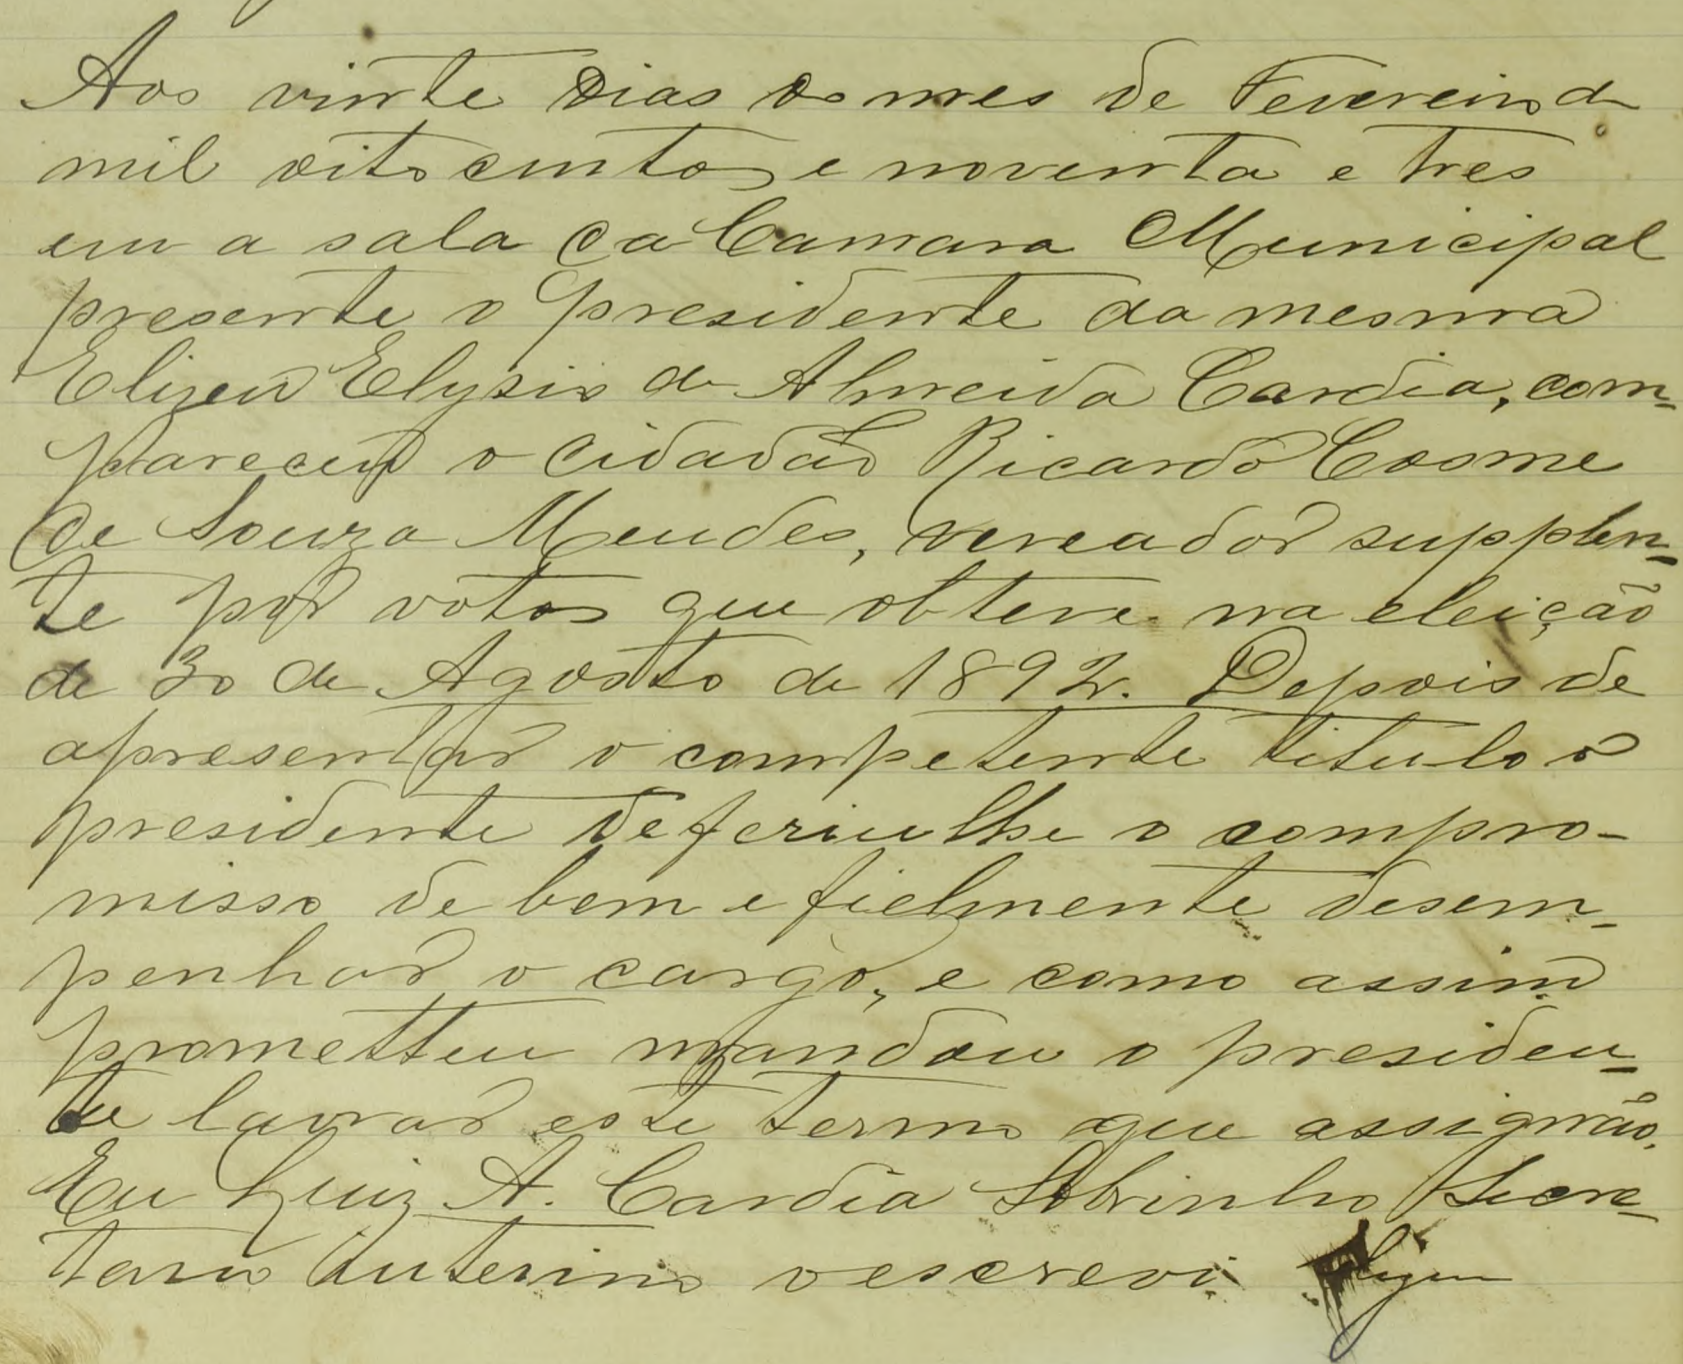 Aos vinte dias do mes de Fevereiro de
mil oito centos e noventa e tres
em a sala da Camara Municipal
presente o presidente da mesma
Elizeu Elysio de Almeida Cardia, com-
pareceu o cidadão Ricardo Cosme
de Souza Mendes, vereador supplen-
te por votos que obteve na eleição
de 30 de Agosto de 1892. Depois de
apresentar o competente titulo o
presidente deferiulhe o compro-
misso de bem e fielmente desem-
penhar o cargo, e como assim
prometteu mandou o presiden-
te lavrar este termo que assignão.
Eu Luiz A. Cardia Sobrinho Secre-
tario interino o escrevi.